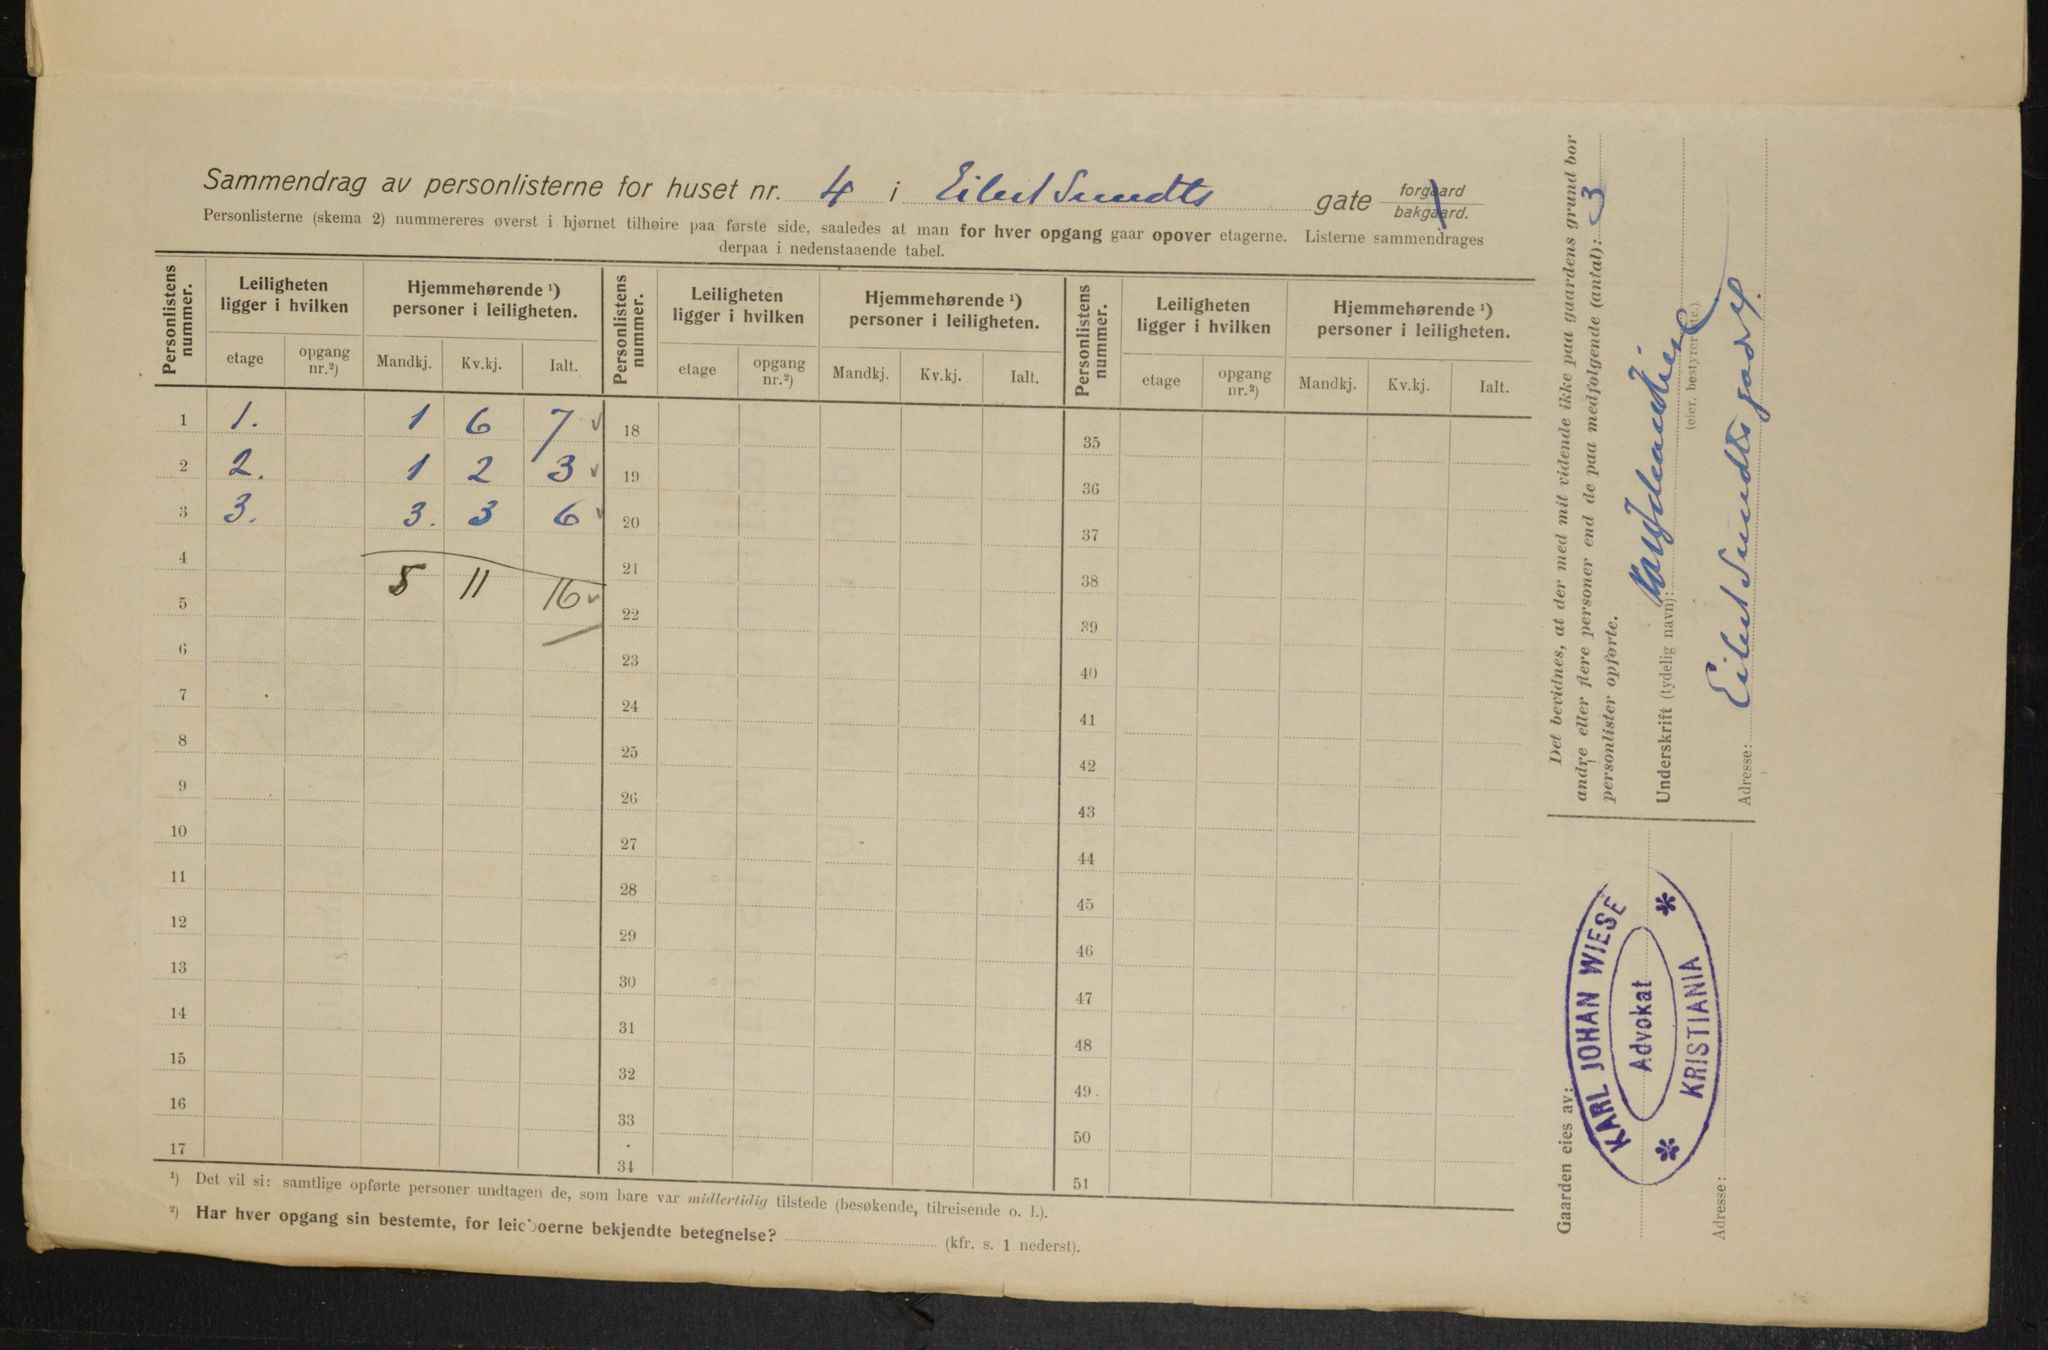 Sammendrag av personlisterne for huset nr. 4 i Eilert Sundts gate forgaard bakgaard.
Personlisterne (skema 2) nummereres øverst i hjørnet tilhøire paa første side, saaledes at man for hver opgang gaar opover etagerne. Listerne sammendrages
derpaa i nedenstaaende tabel.
Personlistens nummer. Leiligheten ligger i hvilken Hjemmehørende ¹) personer i leiligheten. Personlistens nummer. Leiligheten ligger i hvilken Hjemmehørende ¹) personer i leiligheten. Personlistens nummer. Leiligheten ligger i hvilken Hjemmehørende ¹) personer i leiligheten.
etage opgang nr.²) Mandkj. Kv.kj. Ialt. etage opgang nr.²) Mandkj. Kv.kj. Ialt. etage opgang nr.²) Mandkj. Kv.kj. Ialt.
1 1. 1 6 7 18 35
2 2. 1 2 3 19 36
3 3. 3. 3 6 20 37
4 5 11 16 21 38
5 22 39
6 23 40
7 24 41
8 25 42
9 26 43
10 27 44
11 28 45
12 29 46
13 30 47
14 31 48
15 32 49
16 33 50
17 34 51
¹) Det vil si: samtlige opførte personer undtagen de, som bare var midlertidig tilstede (besøkende, tilreisende o. l.).
²) Har hver opgang sin bestemte, for leieboerne bekjendte betegnelse? (kfr. s. 1 nederst).
Det bevidnes, at der med mit vidende ikke paa gaardens grund bor
andre eller flere personer end de paa medfølgende (antal): 3
personlister opførte.
Underskrift (tydelig navn):
(eier, bestyrer etc.).
Adresse: Eilert Sundts gade 4.
Gaarden eies av:
KARL JOHAN WIESE
Advokat
KRISTIANIA
Adresse: